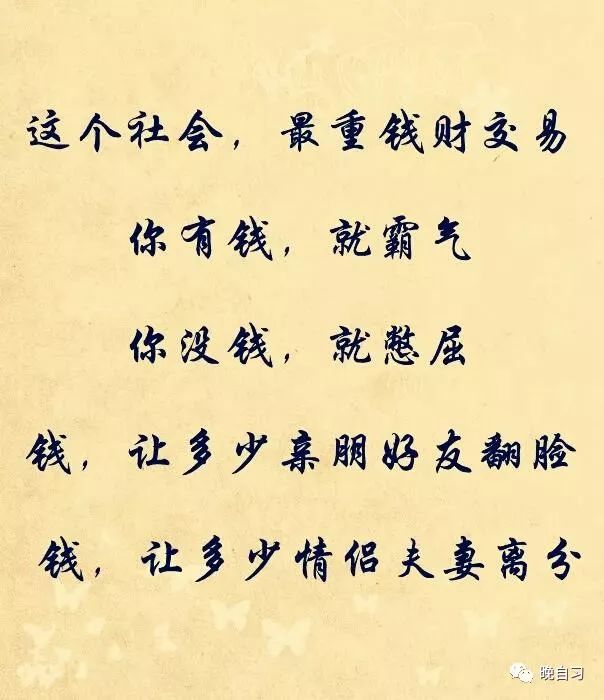 这个社会，最重钱财交易
你有钱，就霸气
你没钱，就憋屈
钱，让多少亲朋好友翻脸
钱，让多少情侣夫妻离分
晚自习